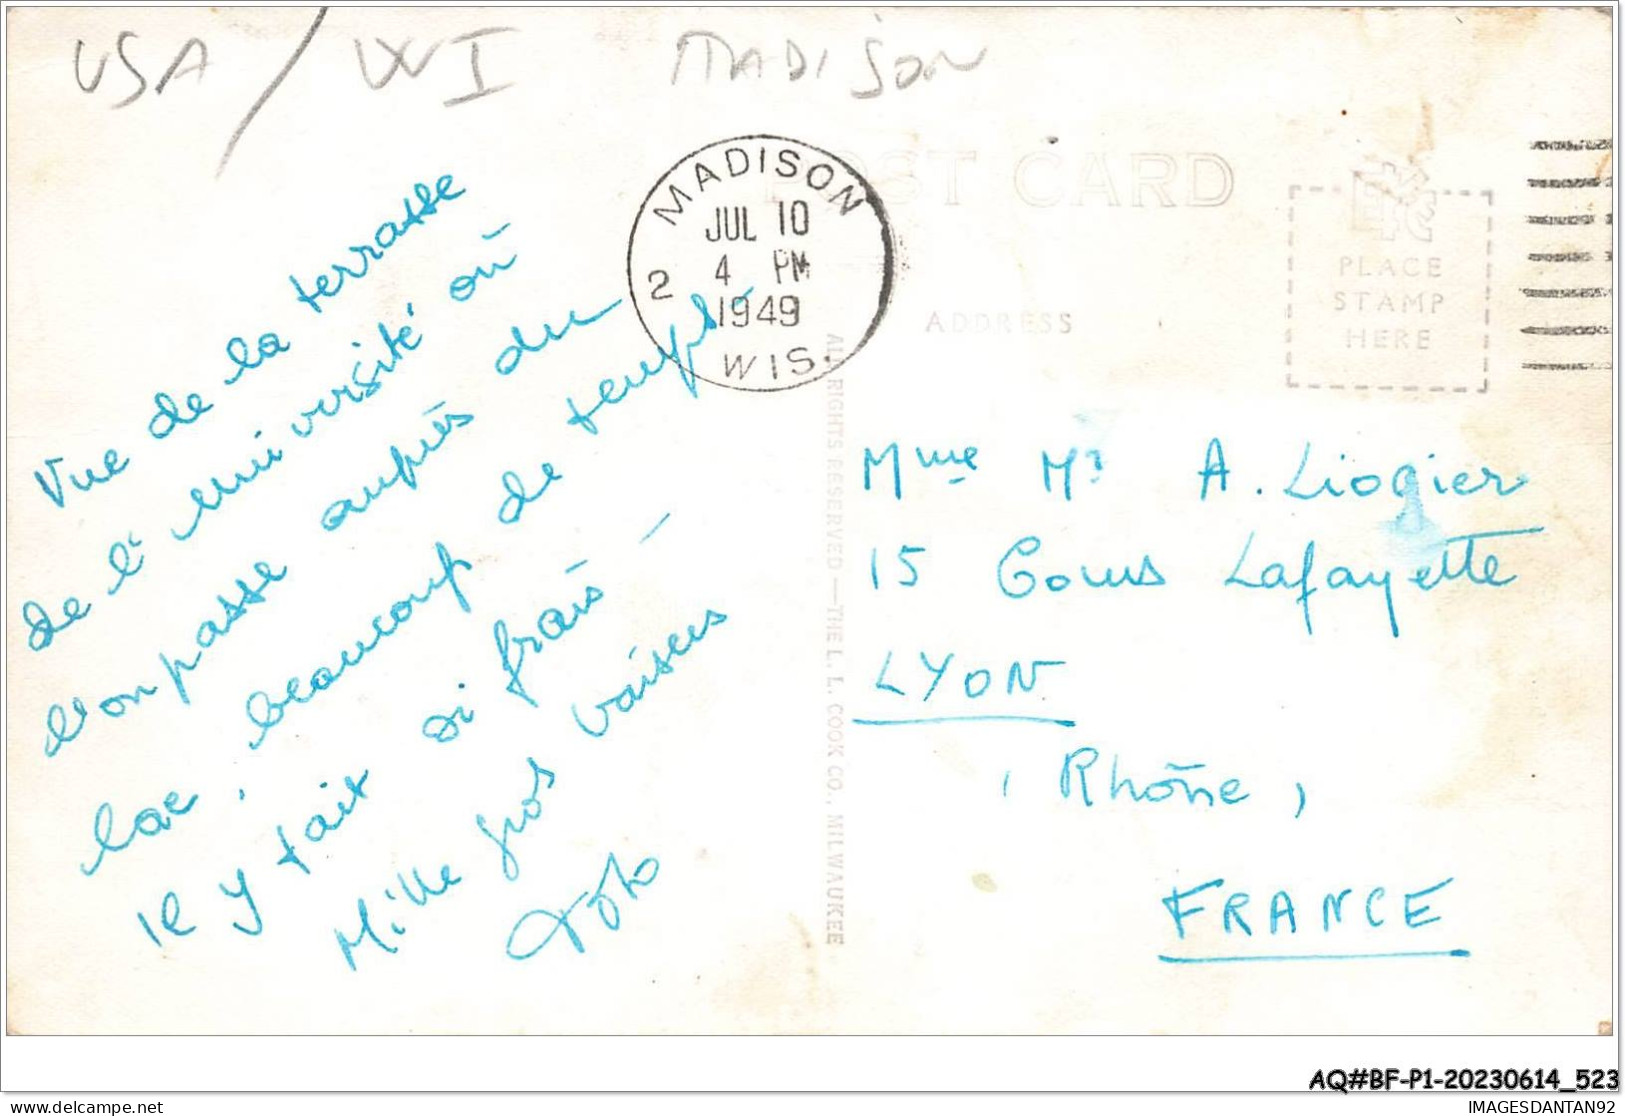 USA / WI MADISON
POST CARD
MADISON
JUL 10
4 PM
2
1949
WIS.
PLACE
STAMP
HERE
ADDRESS
Vue de la terrasse
de l'université où
l'on passe auprès du
lac, beaucoup de temps -
Il y fait si frais -
Mille gros baisers
ALL RIGHTS RESERVED — THE L. L. COOK CO., MILWAUKEE
Mme Mr A. Liogier
15 Cours Lafayette
LYON
(Rhône)
FRANCE
AQ#BF-P1-20230614_523
IMAGESDANTAN92